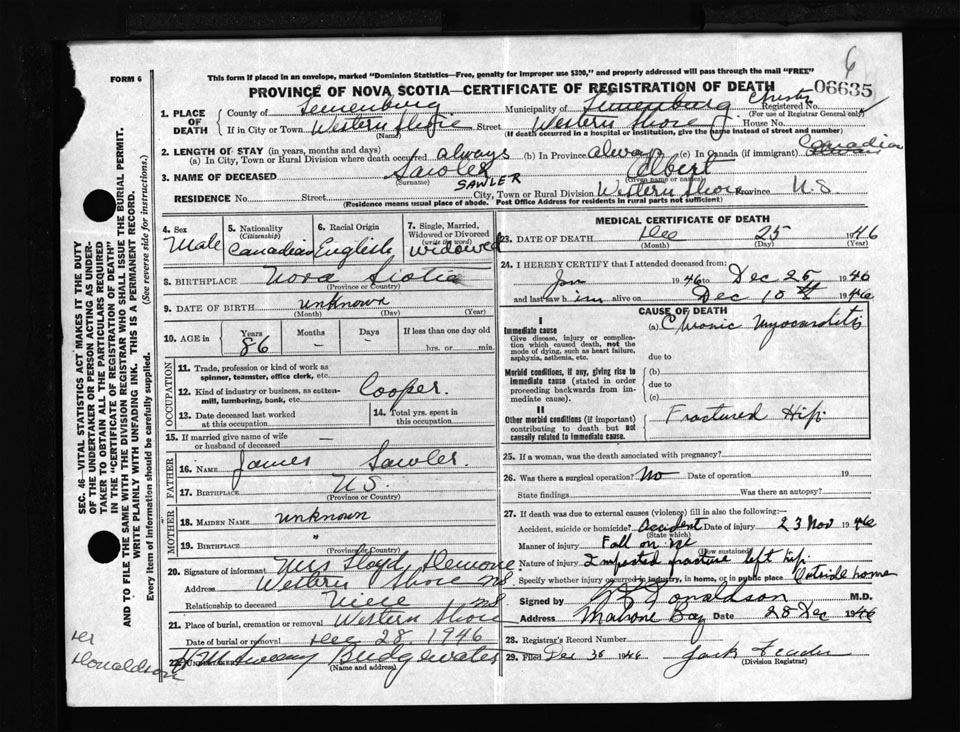 6
FORM 6
This form if placed in an envelope, marked "Dominion Statistics—Free, penalty for improper use $300," and properly addressed will pass through the mail "FREE"
PROVINCE OF NOVA SCOTIA—CERTIFICATE OF REGISTRATION OF DEATH
06635
1. PLACE OF DEATH
County of Lunenburg Municipality of Lunenburg Registered No.
(For use of Registrar General only)
If in City or Town Western Shore Street Western Shore House No.
(Name) (If death occurred in a hospital or institution, give the name instead of street and number)
2. LENGTH OF STAY (in years, months and days)
(a) In City, Town or Rural Division where death occurred always (b) In Province always (c) In Canada (if immigrant) Canadian
3. NAME OF DECEASED Sawler Albert
(Surname) SAWLER (Given name or names)
RESIDENCE No. Street City, Town or Rural Division Western Shore Province N.S
(Residence means usual place of abode. Post Office Address for residents in rural parts not sufficient)
4. Sex Male
5. Nationality (Citizenship) Canadian
6. Racial Origin English
7. Single, Married, Widowed or Divorced (write the word) widowed
8. BIRTHPLACE Nova Scotia
(Province or Country)
9. DATE OF BIRTH unknown
(Month) (Day) (Year)
10. AGE in Years 86 Months — Days — If less than one day old
hrs. or min.
OCCUPATION
11. Trade, profession or kind of work as spinner, teamster, office clerk, etc.
12. Kind of industry or business, as cotton-mill, lumbering, bank, etc. Cooper
13. Date deceased last worked at this occupation
14. Total yrs. spent in this occupation
15. If married give name of wife or husband of deceased —
FATHER
16. NAME James Sawler.
17. BIRTHPLACE N.S.
(Province or Country)
MOTHER
18. MAIDEN NAME unknown
19. BIRTHPLACE "
(Province or Country)
20. Signature of informant Mrs Floyd Demone
Address Western Shore NS
Relationship to deceased Niece NS
21. Place of burial, cremation or removal Western Shore
Date of burial or removal Dec 28. 1946
22. Sweeny Bridgewater
(Name and address)
MEDICAL CERTIFICATE OF DEATH
23. DATE OF DEATH Dec 25 1946
(Month) (Day) (Year)
24. I HEREBY CERTIFY that I attended deceased from:
Jan 1946 to Dec 25 1946
and last saw him alive on Dec 10th 1946
CAUSE OF DEATH
I
Immediate cause
Give disease, injury or complication which caused death, not the mode of dying, such as heart failure, asphyxia, asthenia, etc.
(a) Chronic Myocarditis
due to
Morbid conditions, if any, giving rise to immediate cause (stated in order proceeding backwards from immediate cause).
(b)
due to
(c)
II
Other morbid conditions (if important) contributing to death but not causally related to immediate cause.
Fractured Hip
25. If a woman, was the death associated with pregnancy?
26. Was there a surgical operation? No Date of operation 19
State findings Was there an autopsy?
27. If death was due to external causes (violence) fill in also the following:—
Accident, suicide or homicide? accident Date of injury 23 Nov 1946
(State which)
Manner of injury Fall on ice
(How sustained)
Nature of injury Impacted fracture left hip
Specify whether injury occurred in industry, in home, or in public place Outside home
Signed by Donaldson M.D.
Address Mahone Bay Date 28 Dec 1946
28. Registrar's Record Number
29. Filed Dec 30 1946
(Division Registrar)
SEC. 46—VITAL STATISTICS ACT MAKES IT THE DUTY
OF THE UNDERTAKER OR PERSON ACTING AS UNDER-
TAKER TO OBTAIN ALL THE PARTICULARS REQUIRED
IN THE "CERTIFICATE OF REGISTRATION OF DEATH"
AND TO FILE THE SAME WITH THE DIVISION REGISTRAR WHO SHALL ISSUE THE BURIAL PERMIT.
WRITE PLAINLY WITH UNFADING INK. THIS IS A PERMANENT RECORD.
Every item of information should be carefully supplied. (See reverse side for instructions.)
Dr
Donaldson